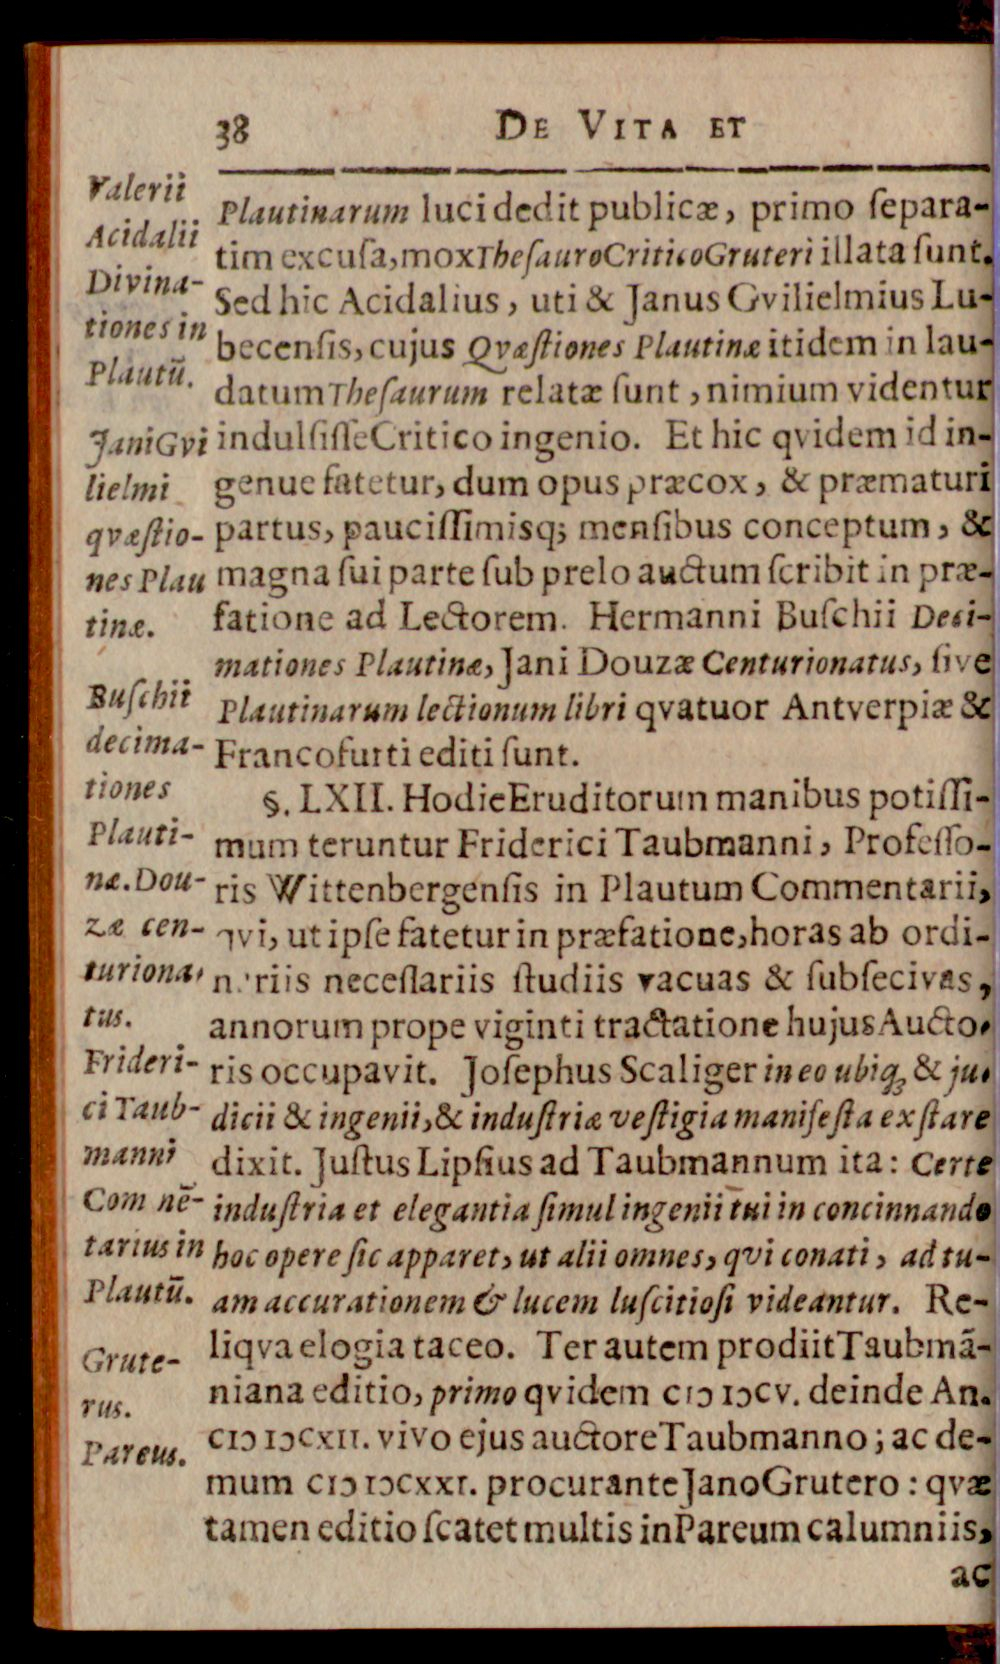 38 DE VITA ET
Valerii
Acidalii
Divina-
tiones in
Plautū.
Jani Gvi
lielmi
qvæſtio-
nes Plau
tinæ.
Buſchii
decima-
tiones
Plauti-
næ. Dou-
zæ cen-
turiona-
tus.
Frideri-
ci Taub-
manni
Com nē-
tarius in
Plautū.
Grute-
rus.
Pareus.
Plautinarum luci dedit publicæ, primo ſepara-
tim excuſa, mox Theſauro Critico Gruteri illata ſunt.
Sed hic Acidalius, uti & Janus Gvilielmius Lu-
becenſis, cujus Qvæſtiones Plautinæ itidem in lau-
datum Theſaurum relatæ ſunt, nimium videntur
indulſiſſe Critico ingenio. Et hic qvidem id in-
genue fatetur, dum opus præcox, & præmaturi
partus, pauciſſimisq; menſibus conceptum, &
magna ſui parte ſub prelo auctum ſcribit in præ-
fatione ad Lectorem. Hermanni Buſchii Deci-
mationes Plautinæ, Jani Douzæ Centurionatus, ſive
Plautinarum lectionum libri qvatuor Antverpiæ &
Francofurti editi ſunt.
§. LXII. Hodie Eruditorum manibus potiſſi-
mum teruntur Friderici Taubmanni, Profeſſo-
ris Wittenbergenſis in Plautum Commentarii,
qvi, ut ipſe fatetur in præfatione, horas ab ordi-
nariis neceſſariis ſtudiis vacuas & ſubſecivas,
annorum prope viginti tractatione hujus Aucto-
ris occupavit. Joſephus Scaliger in eo ubiq; & ju-
dicii & ingenii, & induſtriæ veſtigia manifeſta exſtare
dixit. Juſtus Lipſius ad Taubmannum ita: Certe
induſtria et elegantia ſimul ingenii tui in concinnando
hoc opere ſic apparet, ut alii omnes, qvi conati, ad tu-
am accurationem & lucem luſcitioſi videantur. Re-
liqva elogia taceo. Ter autem prodiit Taubmā-
niana editio, primo qvidem cIɔ Iɔcv. deinde An.
cIɔ Iɔcxii. vivo ejus auctore Taubmanno; ac de-
mum cIɔ Iɔcxxi. procurante Jano Grutero: qvæ
tamen editio ſcatet multis in Pareum calumniis,
ac